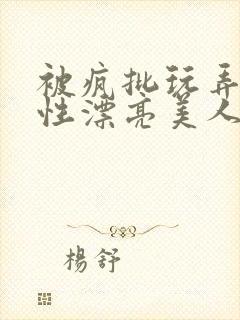 被疯批玩弄
性漂亮美人
楊舒